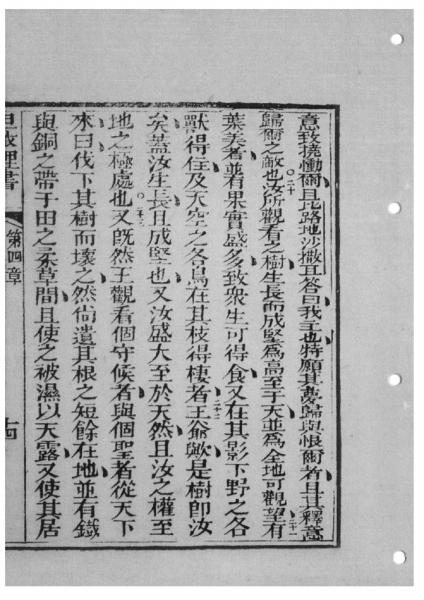 意致擾慟爾且比路地沙撒且答曰我主也特願其夢歸與恨爾者且其釋意
歸爾之敵也二十汝所觀看之樹生長而成堅為高至于天並為全地可觀望二十一有
葉美者並有果實盛多致衆生可得食又在其影下野之各
獸得住及天空之各鳥在其枝得棲者二十二王爺歟是樹即汝
矣蓋汝生長且成堅也又汝盛大至於天然且汝之權至
地之極處也二十三又既然王觀看個守候者與個聖者從天下
來曰伐下其樹而壞之然尚遺其根之短餘在地並有鐵
與銅之帶于田之柔草間且使之被濕以天露又使其居
理書
第四章
十四